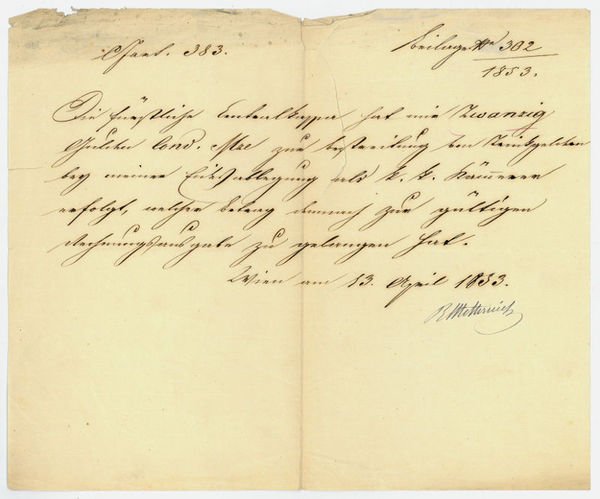 Beilage Nr 302
1853.
383.
Die fürstliche Centralkassa hat mir Zwanzig
Gulden Conv. Mze zur Bestreitung von Trinkgeldern
bey meiner Eidesablegung als k. k. Kämmerer
erfolgt, welcher Betrag demnach zur gültigen
Rechnungsausgabe zu gelangen hat.
Wien am 13. April 1853.
RMetternich